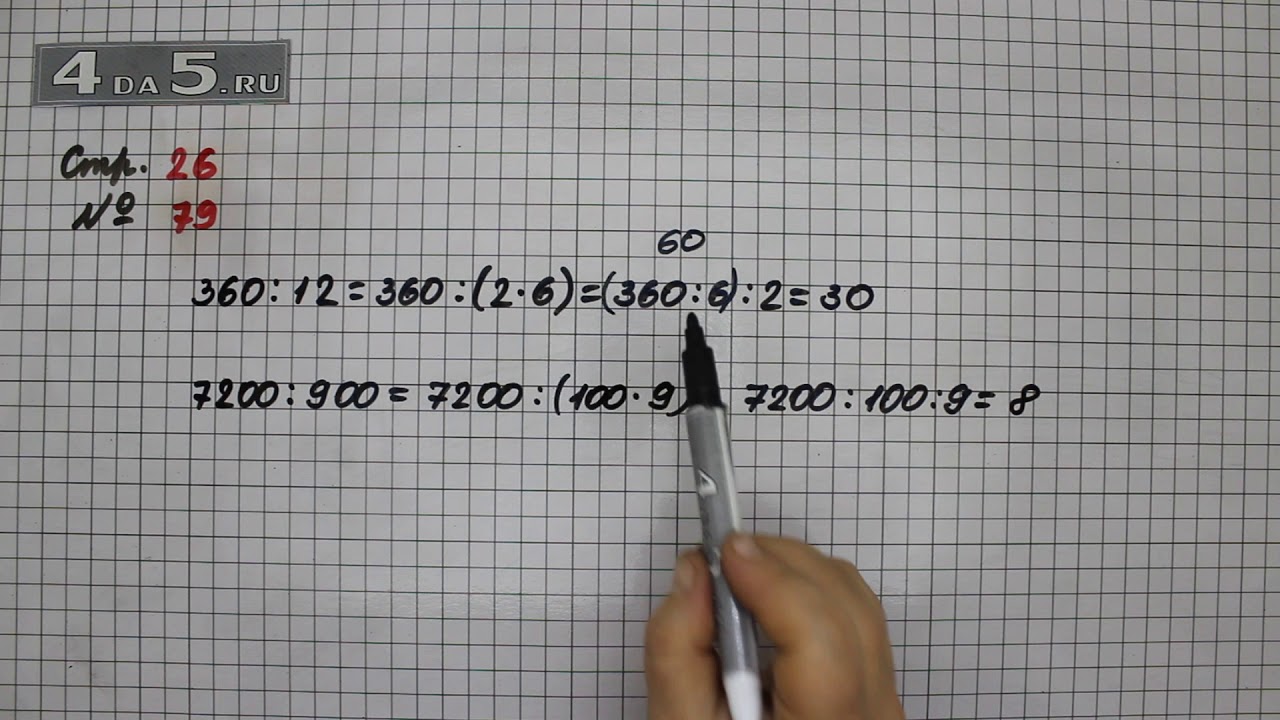 4DA5.RU
Стр. 26
№ 79
60
360:12=360:(2·6)=(360:6):2=30
7200:900=7200:(100·9) 7200:100:9=8